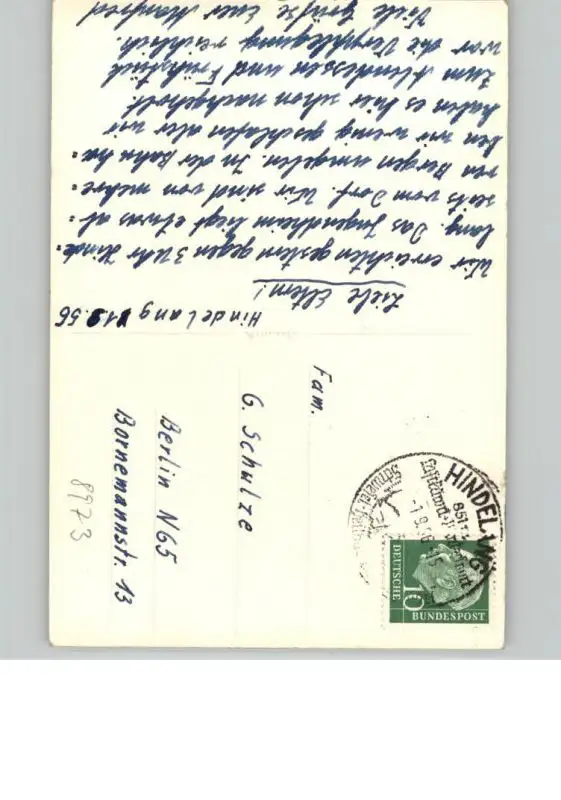 Hindelang 1.9.56
Liebe Eltern!
Wir erreichten gestern gegen 3 Uhr Hinde-
lang. Das Jugendheim liegt etwas ab-
seits vom Dorf. Wir sind von mehre-
ren Bergen umgeben. In der Bahn ha-
ben wir wenig geschlafen aber wir
haben es hier schon nachgeholt.
Zum Abendessen und Frühstück
war die Verpflegung reichlich.
Viele Grüße Euer Manfred
Fam.
G. Schulze
Berlin N65
Bornemannstr. 13
8973
HINDELANG
Schwefel-
Luftkurort
DEUTSCHE
BUNDESPOST
10